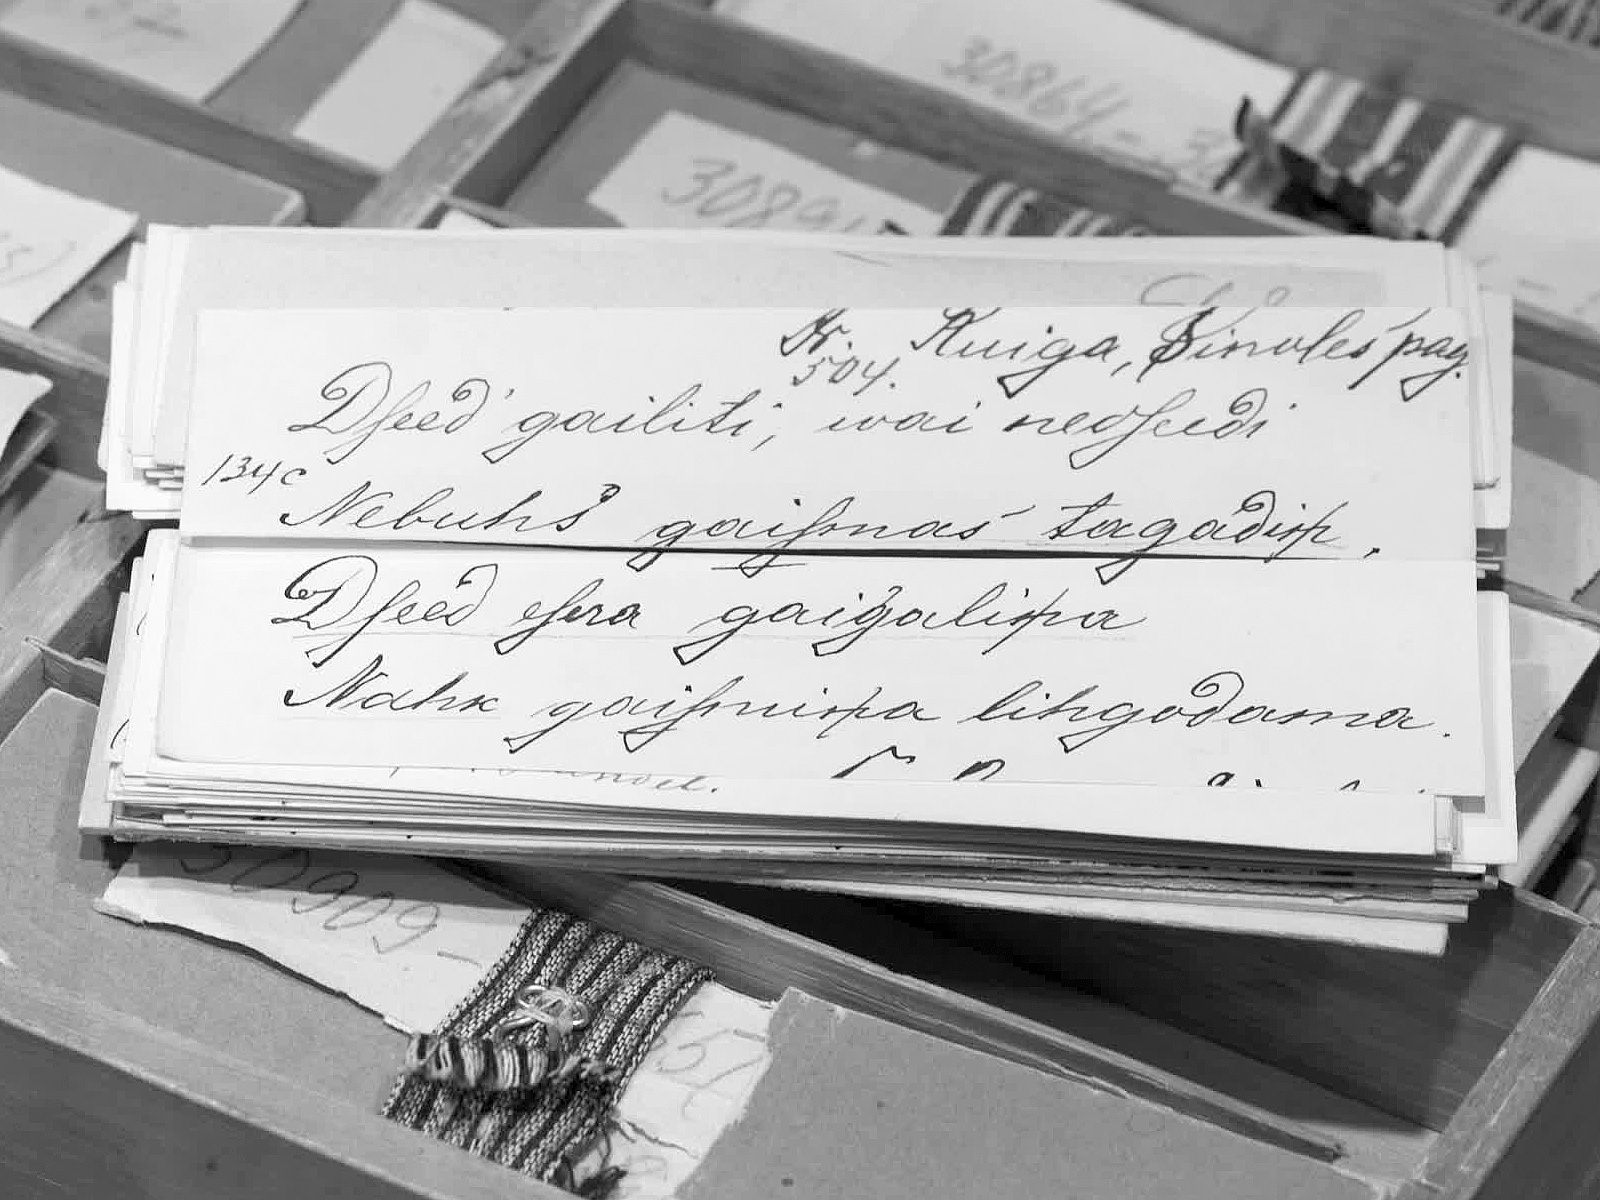 30864-
3089
Kr. Kuiga, Sinoles pag.
504.
Dseed' gailiti, wai nedseedi
134c
Nebuhs gaismas tagadiņ,
Dseed esera gaigaliņa
Nahk gaismiņa lihgodama.
30909-